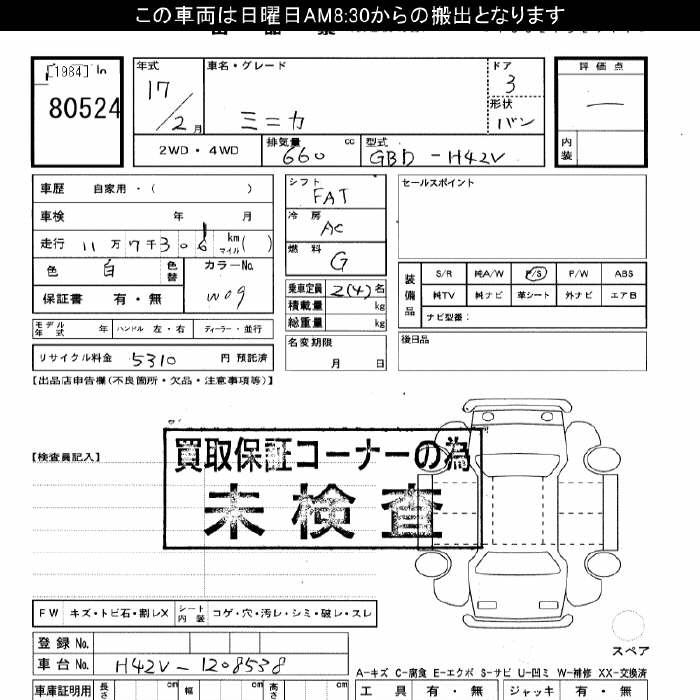 この車両は日曜日AM8:30からの搬出となります
[1984] In
80524
年式 車名・グレード ドア 評価点
17/2月 ミニカ 3 —
形状 バン
2WD・4WD 排気量 660 cc 型式 GBD-H42V 内装
車歴 自家用・( ) シフト FAT セールスポイント
車検 年 月 冷房 AC
走行 11万7千306 km マイル ( ) 燃料 G
色 白 色替 カラーNo. W09
保証書 有・無
乗車定員 2(4)名
積載量 kg
総重量 kg
装備品 S/R 純A/W P/S P/W ABS
純TV 純ナビ 革シート 外ナビ エアB
ナビ型番:
モデル年式 年 ハンドル 左・右 ディーラー・並行
名変期限 月 日
後日品
リサイクル料金 5310 円 預託済
【出品店申告欄(不良箇所・欠品・注意事項等)】
【検査員記入】
買取保証コーナーの為
未検査
FW キズ・トビ石・割レX シート内装 コゲ・穴・汚レ・シミ・破レ・スレ
登録No.
車台No. H42V-1208538
スペア
A-キズ C-腐食 E-エクボ S-サビ U-凹ミ W-補修 XX-交換済
車庫証明用 長さ cm 幅 cm 高さ cm
工具 有・無 ジャッキ 有・無